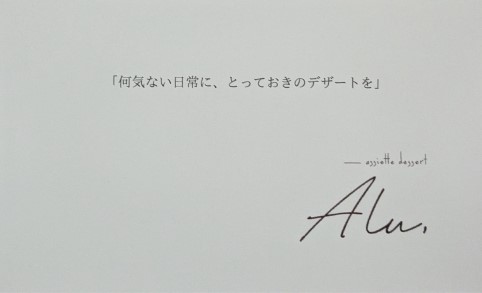 「何気ない日常に、とっておきのデザートを」
— assiette dessert
Alu.